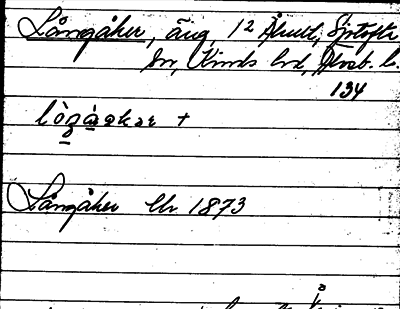 Långåker, äng, 12 Åhult, Sjötofta
sn, Kinds hd, Älvsb. l.
134
lòŋåskər +
Långåker Ur. 1873